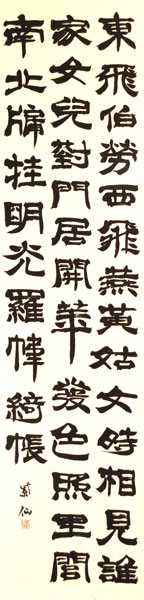 東飛伯勞西飛燕黃姑女時相見誰
家女兒對門居開華發色照里閭
南北牖挂明光羅幃綺帳
仙